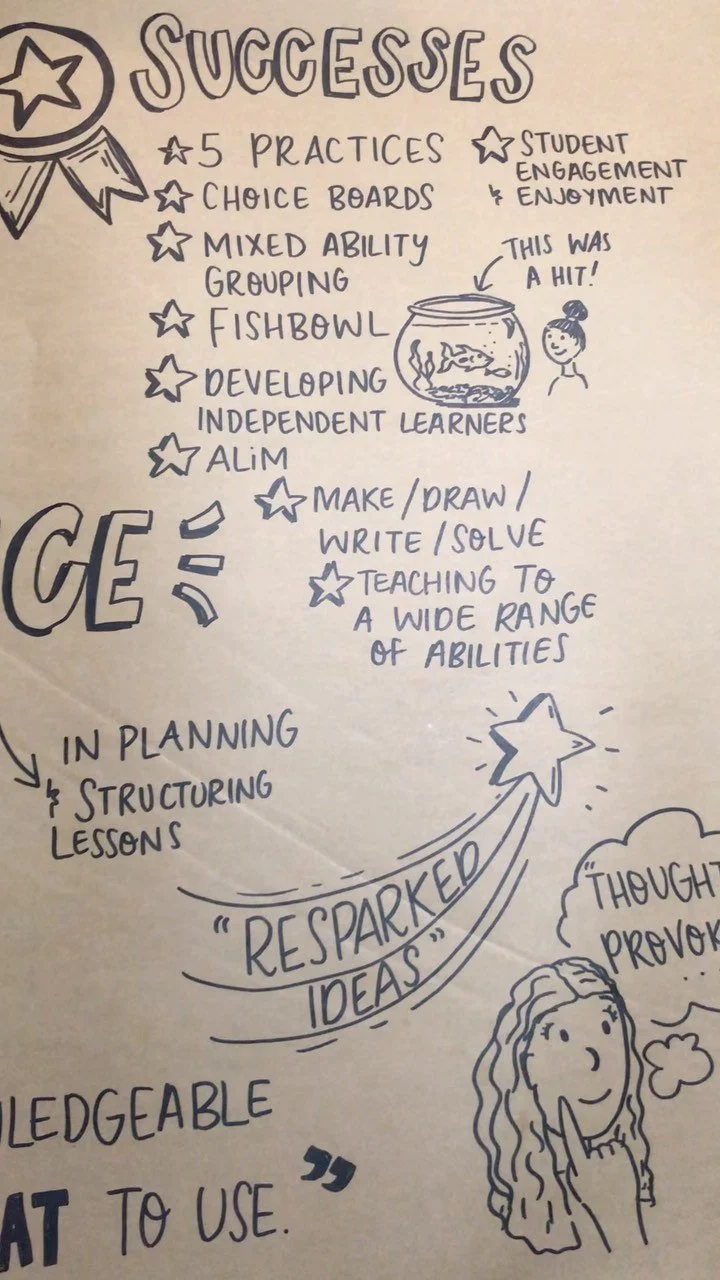 SUCCESSES
5 PRACTICES
CHOICE BOARDS
MIXED ABILITY
GROUPING
FISHBOWL
DEVELOPING
INDEPENDENT LEARNERS
ALiM
STUDENT
ENGAGEMENT
& ENJOYMENT
THIS WAS
A HIT!
MAKE/DRAW/
WRITE/SOLVE
TEACHING TO
A WIDE RANGE
OF ABILITIES
CE
IN PLANNING
& STRUCTURING
LESSONS
"RESPARKED
IDEAS"
"THOUGHT
PROVOK
LEDGEABLE
AT TO USE."